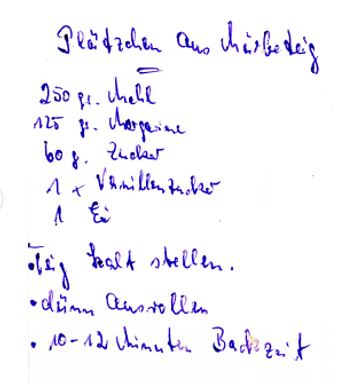 Plätzchen aus Mürbeteig
250 gr. Mehl
125 gr. Margarine
60 g. Zucker
1 x Vanillenzucker
1 Ei
• Teig kalt stellen.
• dünn ausrollen
• 10-12 Minuten Backzeit